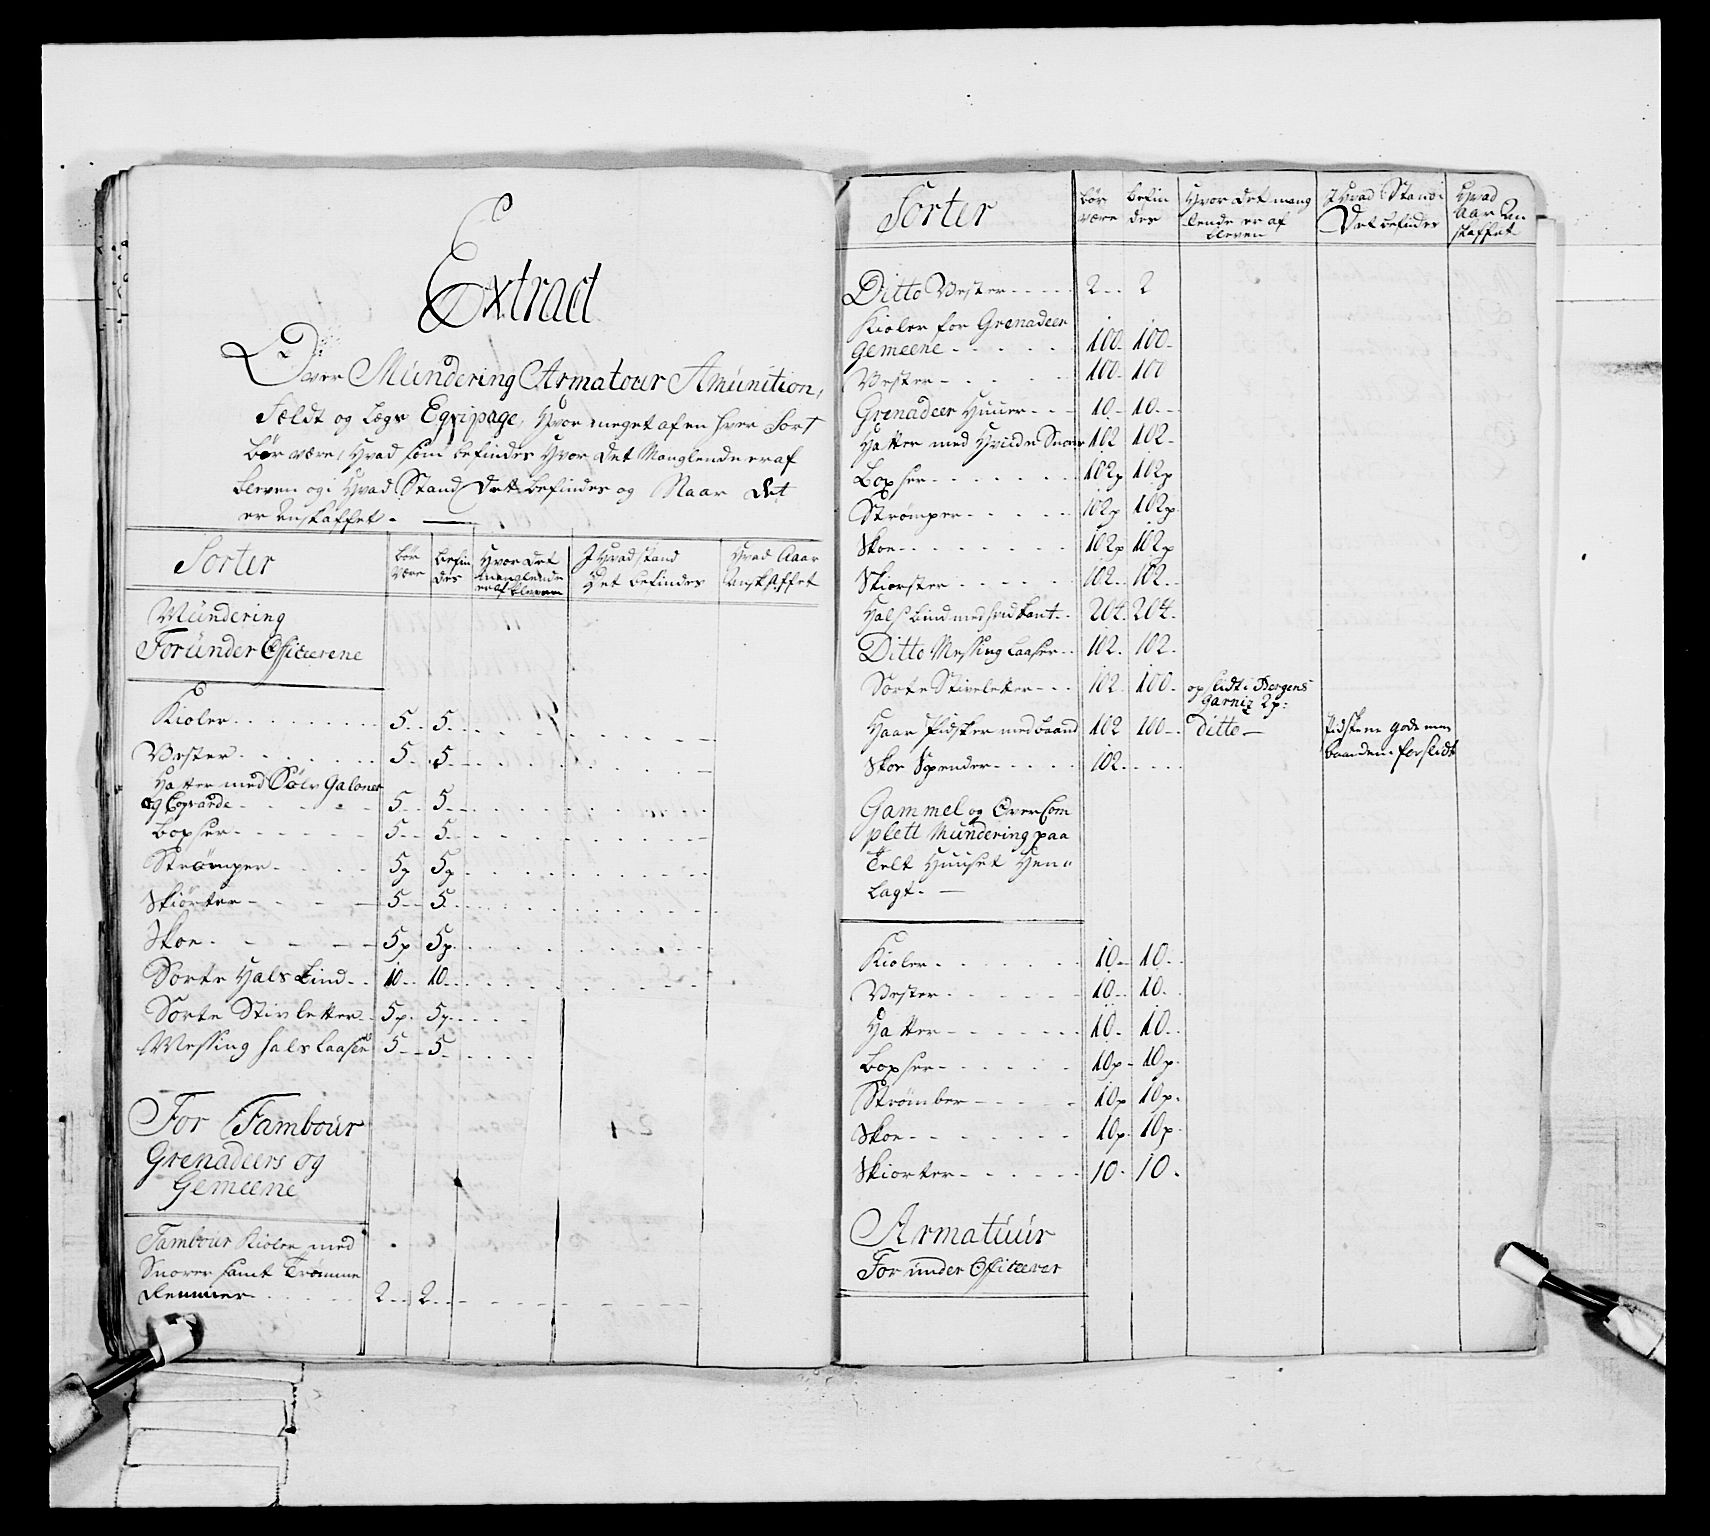 Extract
Over Mündering Armatour Amünition,
Feldt og Legr Eqvipage, Hvor meget af en hver Sort
bør være, Hvad som befindes Hvor Det Manglende er af
bleven og i Hvad Stand Dett befindes og Naar det
er Anskaffet.
Sorter bør være befindes Hvor Det manglende er af bleven I Hvad stand Det befindes Hvad Aaar Anskaffet
Mündering
For ünder Officererne
Kioler 5 5
Vester 5 5
Hatter med Sølv Galoner
og Coqvarde 5 5
boxser 5 5
Strømper 5p 5p
Skiorter 5 5
Skoe 5p 5p
Sorte Hals bind 10 10
Sorte Stivletter 5p 5p
Messing hals Laaser 5 5
For Tambour
Grenadeers og
Gemeene
Tambour Kioler med
Snorer samt Tromme
Remmer 2 2
Sorter bør være befindes Hvor det manglende er af bleven I Hvad Stand Det befindes Hvad Aar Anskaffet
Ditto Vester 2 2
Kioler for Grenadeer
Gemeene 100 100
Vester 100 100
Grenadeer Huuer 10 10
Hatter med Hvide Snorer 102 102
boxser 102p 102p
Strømper 102p 102p
Skoe 102p 102p
Skiorter 102 102
Hals bind med hvid kant 204 204
Ditto Messing Laaser 102 102
Sorte Stivletter 102 100 opslidt i Bergens
Garniz 2p:
Haar Pidsker med baand 102 100 Ditto Pidskene gode men
baanden forslidt
Skoe Spender 102
Gammel og Over Com
plett Mündering paa
Telt Huuset Hen
lagt.
Kioler 10 10
Vester 10 10
Hatter 10 10
boxser 10p 10p
Strømber 10p 10p
Skoe 10p 10p
Skiorter 10 10
Armatüür
For ünder Officerer